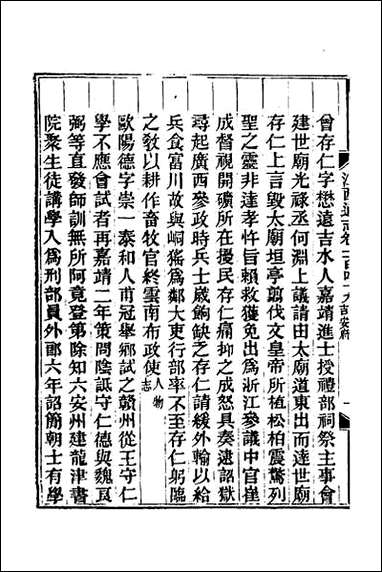 曾存仁字懋遠吉水人嘉靖進士授禮部祠祭主事會
建世廟光祿丞何淵上議請由太廟道東出而達世廟
存仁上言毀太廟垣亭翦伐文皇帝所植松柏震驚列
聖之靈非達孝忤旨賴救獲免出為浙江參議中官崔
成督視開礦所在擾民存仁痛抑之成怒具奏逮詔獄
尋起廣西參政時兵士歲餉缺乏存仁請緩外輸以給
兵食富川故與峒猺為鄰大吏行部率不至存仁躬臨
之敎以耕作畜牧官終雲南布政使人物志
歐陽德字崇一泰和人甫冠舉鄉試之贛州從王守仁
學不應會試者再嘉靖二年策問陰詆守仁德與魏良
弼等直發師訓無所阿竟登第除知六安州建龍津書
院聚生徒講學入為刑部員外郎六年詔簡朝士有學
江西通志卷一百四十八吉安府
一